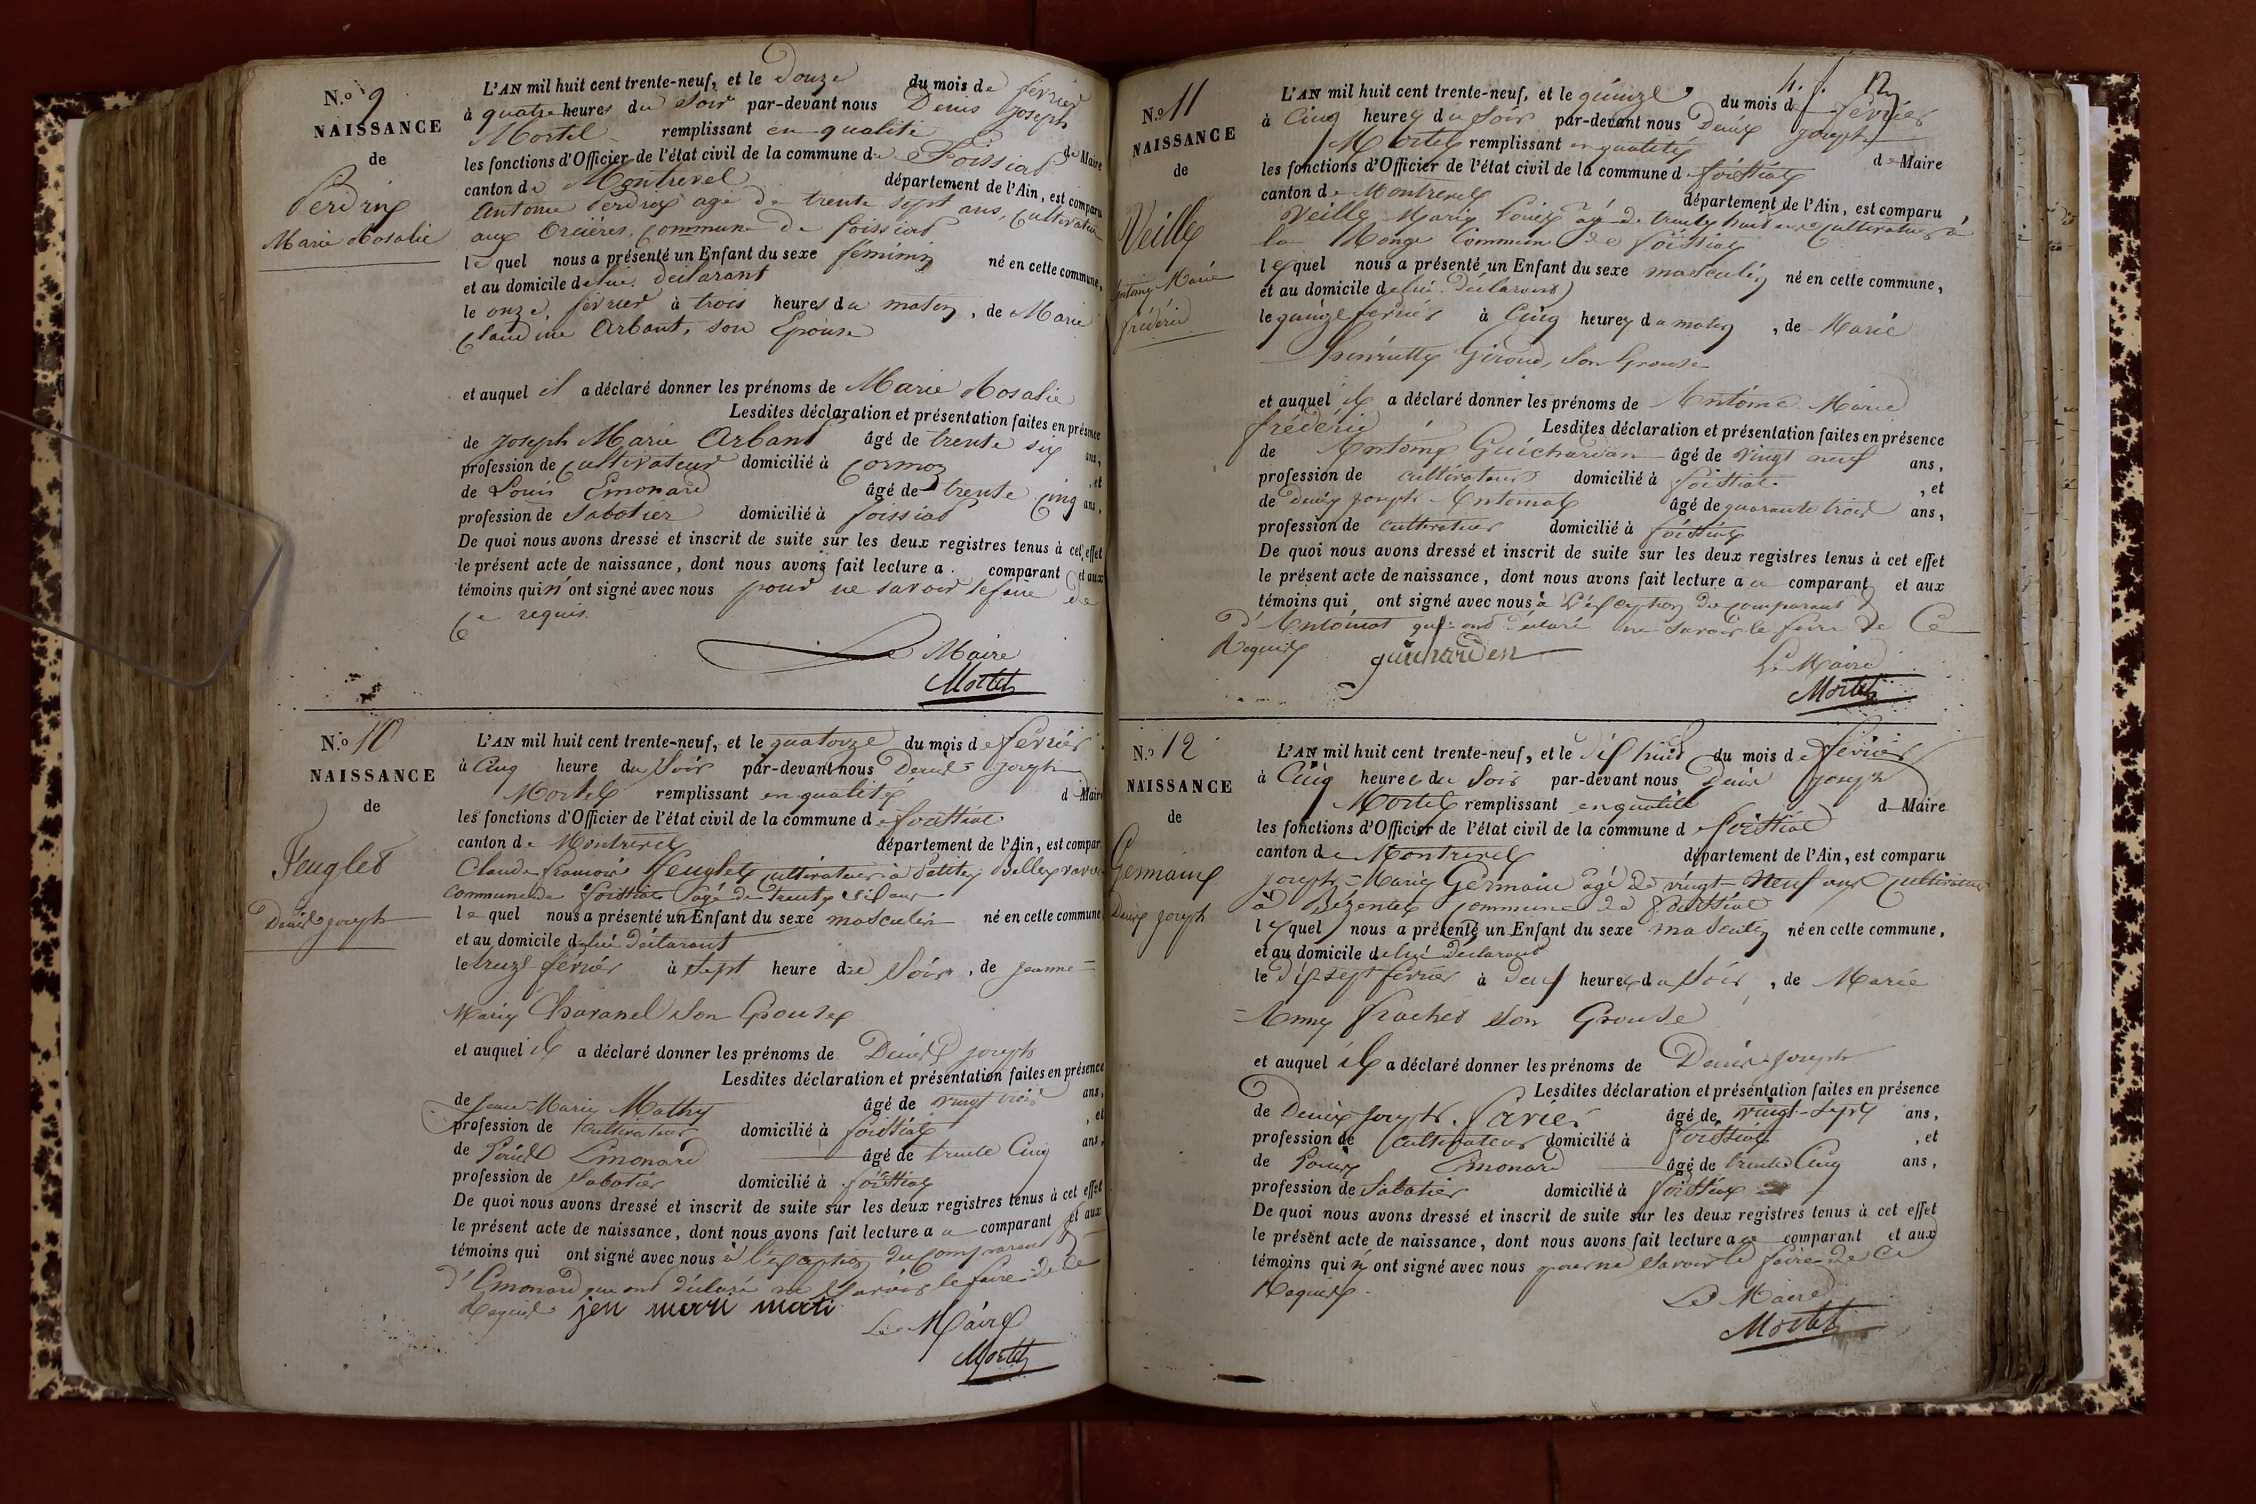 N.o 9
NAISSANCE
de
Perdrix
Marie Rosalie
L'AN mil huit cent trente-neuf, et le Douze du mois de février
à quatre heures du Soir par-devant nous Denis Joseph
Mortel remplissant en qualité de Maire
les fonctions d'Officier de l'état civil de la commune de Foissiat
canton de Montrevel département de l'Ain, est comparu
Antoine Perdrix agé de trente sept ans, Cultivateur
aux Orcières, commune de foissiat
lequel nous a présenté un Enfant du sexe féminin né en cette commune,
et au domicile de lui déclarant
le onze février à trois heures du matin, de Marie
Claudine Arbant, son Epouse
et auquel il a déclaré donner les prénoms de Marie Rosalie
Lesdites déclaration et présentation faites en présence
de Joseph Marie Arbant âgé de trente six ans,
profession de Cultivateur domicilié à Cormoz , et
de Louis Emonard âgé de trente cinq ans,
profession de Sabotier domicilié à foissiat
De quoi nous avons dressé et inscrit de suite sur les deux registres tenus à cet effet
le présent acte de naissance, dont nous avons fait lecture a comparant et aux
témoins qui n'ont signé avec nous pour ne savoir le faire de
Ce requis.
Le Maire
Mortel
N.o 10
NAISSANCE
de
Feuglet
Denis Joseph
L'AN mil huit cent trente-neuf, et le quatorze du mois de février
à Cinq heure du Soir par-devant nous Denis Joseph
Mortel remplissant en qualité d Maire
les fonctions d'Officier de l'état civil de la commune de foissiat
canton de Montrevel département de l'Ain, est compar
Claude françois Feuglet cultivateur à Petites
commune de foissiat agé de trente six ans
lequel nous a présenté un Enfant du sexe masculin né en cette commune
et au domicile de lui déclarant
le treize février à Sept heure du Soir, de Jeanne
Marie Charanel son Epouse
et auquel il a déclaré donner les prénoms de Denis Joseph
Lesdites déclaration et présentation faites en présence
de Jean Marie Mathy âgé de vingt trois ans,
profession de Cultivateur domicilié à foissiat , et
de Louis Emonard âgé de trente Cinq ans,
profession de Sabotier domicilié à foissiat
De quoi nous avons dressé et inscrit de suite sur les deux registres tenus à cet effet
le présent acte de naissance, dont nous avons fait lecture a u comparant et aux
témoins qui ont signé avec nous à l'exception du comparant &
d'Emonard qui ont déclaré ne savoir le faire de Ce
Requis jen mari mati
Le Maire
Mortel
N.o 11
NAISSANCE
de
Veille
Antoine Marie
fréderic
L'AN mil huit cent trente-neuf, et le quinze du mois de février
à Cinq heures du Soir par-devant nous Denis Joseph
Mortel remplissant en qualité de Maire
les fonctions d'Officier de l'état civil de la commune d foissiat
canton de Montrevel département de l'Ain, est comparu
Veille Marie Louis agé de trente huit ans Cultivateur à
la Monge Commune de foissiat
lequel nous a présenté un Enfant du sexe masculin né en cette commune,
et au domicile de lui déclarant
le quinze février à Cinq heures du matin, de Marie
henriette Giroud, Son Epouse
et auquel il a déclaré donner les prénoms de Antoine Marie
fréderic Lesdites déclaration et présentation faites en présence
de Antoine Guichardan âgé de vingt neuf ans,
profession de cultivateur domicilié à foissiat , et
de Denis Joseph Antomat âgé de quarante trois ans,
profession de cultivateur domicilié à foissiat
De quoi nous avons dressé et inscrit de suite sur les deux registres tenus à cet effet
le présent acte de naissance, dont nous avons fait lecture a u comparant et aux
témoins qui ont signé avec nous à L'exception du comparant &
d'Antomat qui ont déclaré ne savoir le faire de Ce
Requis guicharden
Le Maire
Mortel
N.o 12
NAISSANCE
de
Germain
Denis Joseph
L'AN mil huit cent trente-neuf, et le dix huit du mois de février
à Cinq heures du Soir par-devant nous Denis Joseph
Mortel remplissant en qualité d Maire
les fonctions d'Officier de l'état civil de la commune d foissiat
canton de Montrevel département de l'Ain, est comparu
Joseph-Marie Germain agé de vingt-Neuf ans Cultivateur
à Bézentet Commune de foissiat
lequel nous a présenté un Enfant du sexe masculin né en cette commune,
et au domicile de lui déclarant
le dix-sept février à deux heures du Soir, de Marie
Anne frachet son Epouse
et auquel il a déclaré donner les prénoms de Denis Joseph
Lesdites déclaration et présentation faites en présence
de Denis Joseph âgé de vingt-sept ans,
profession de Cultivateur domicilié à foissiat , et
de Louis Emonard âgé de trente Cinq ans,
profession de Sabotier domicilié à foissiat
De quoi nous avons dressé et inscrit de suite sur les deux registres tenus à cet effet
le présent acte de naissance, dont nous avons fait lecture au comparant et aux
témoins qui n'ont signé avec nous pour ne savoir le faire de Ce
Requis.
Le Maire
Mortel